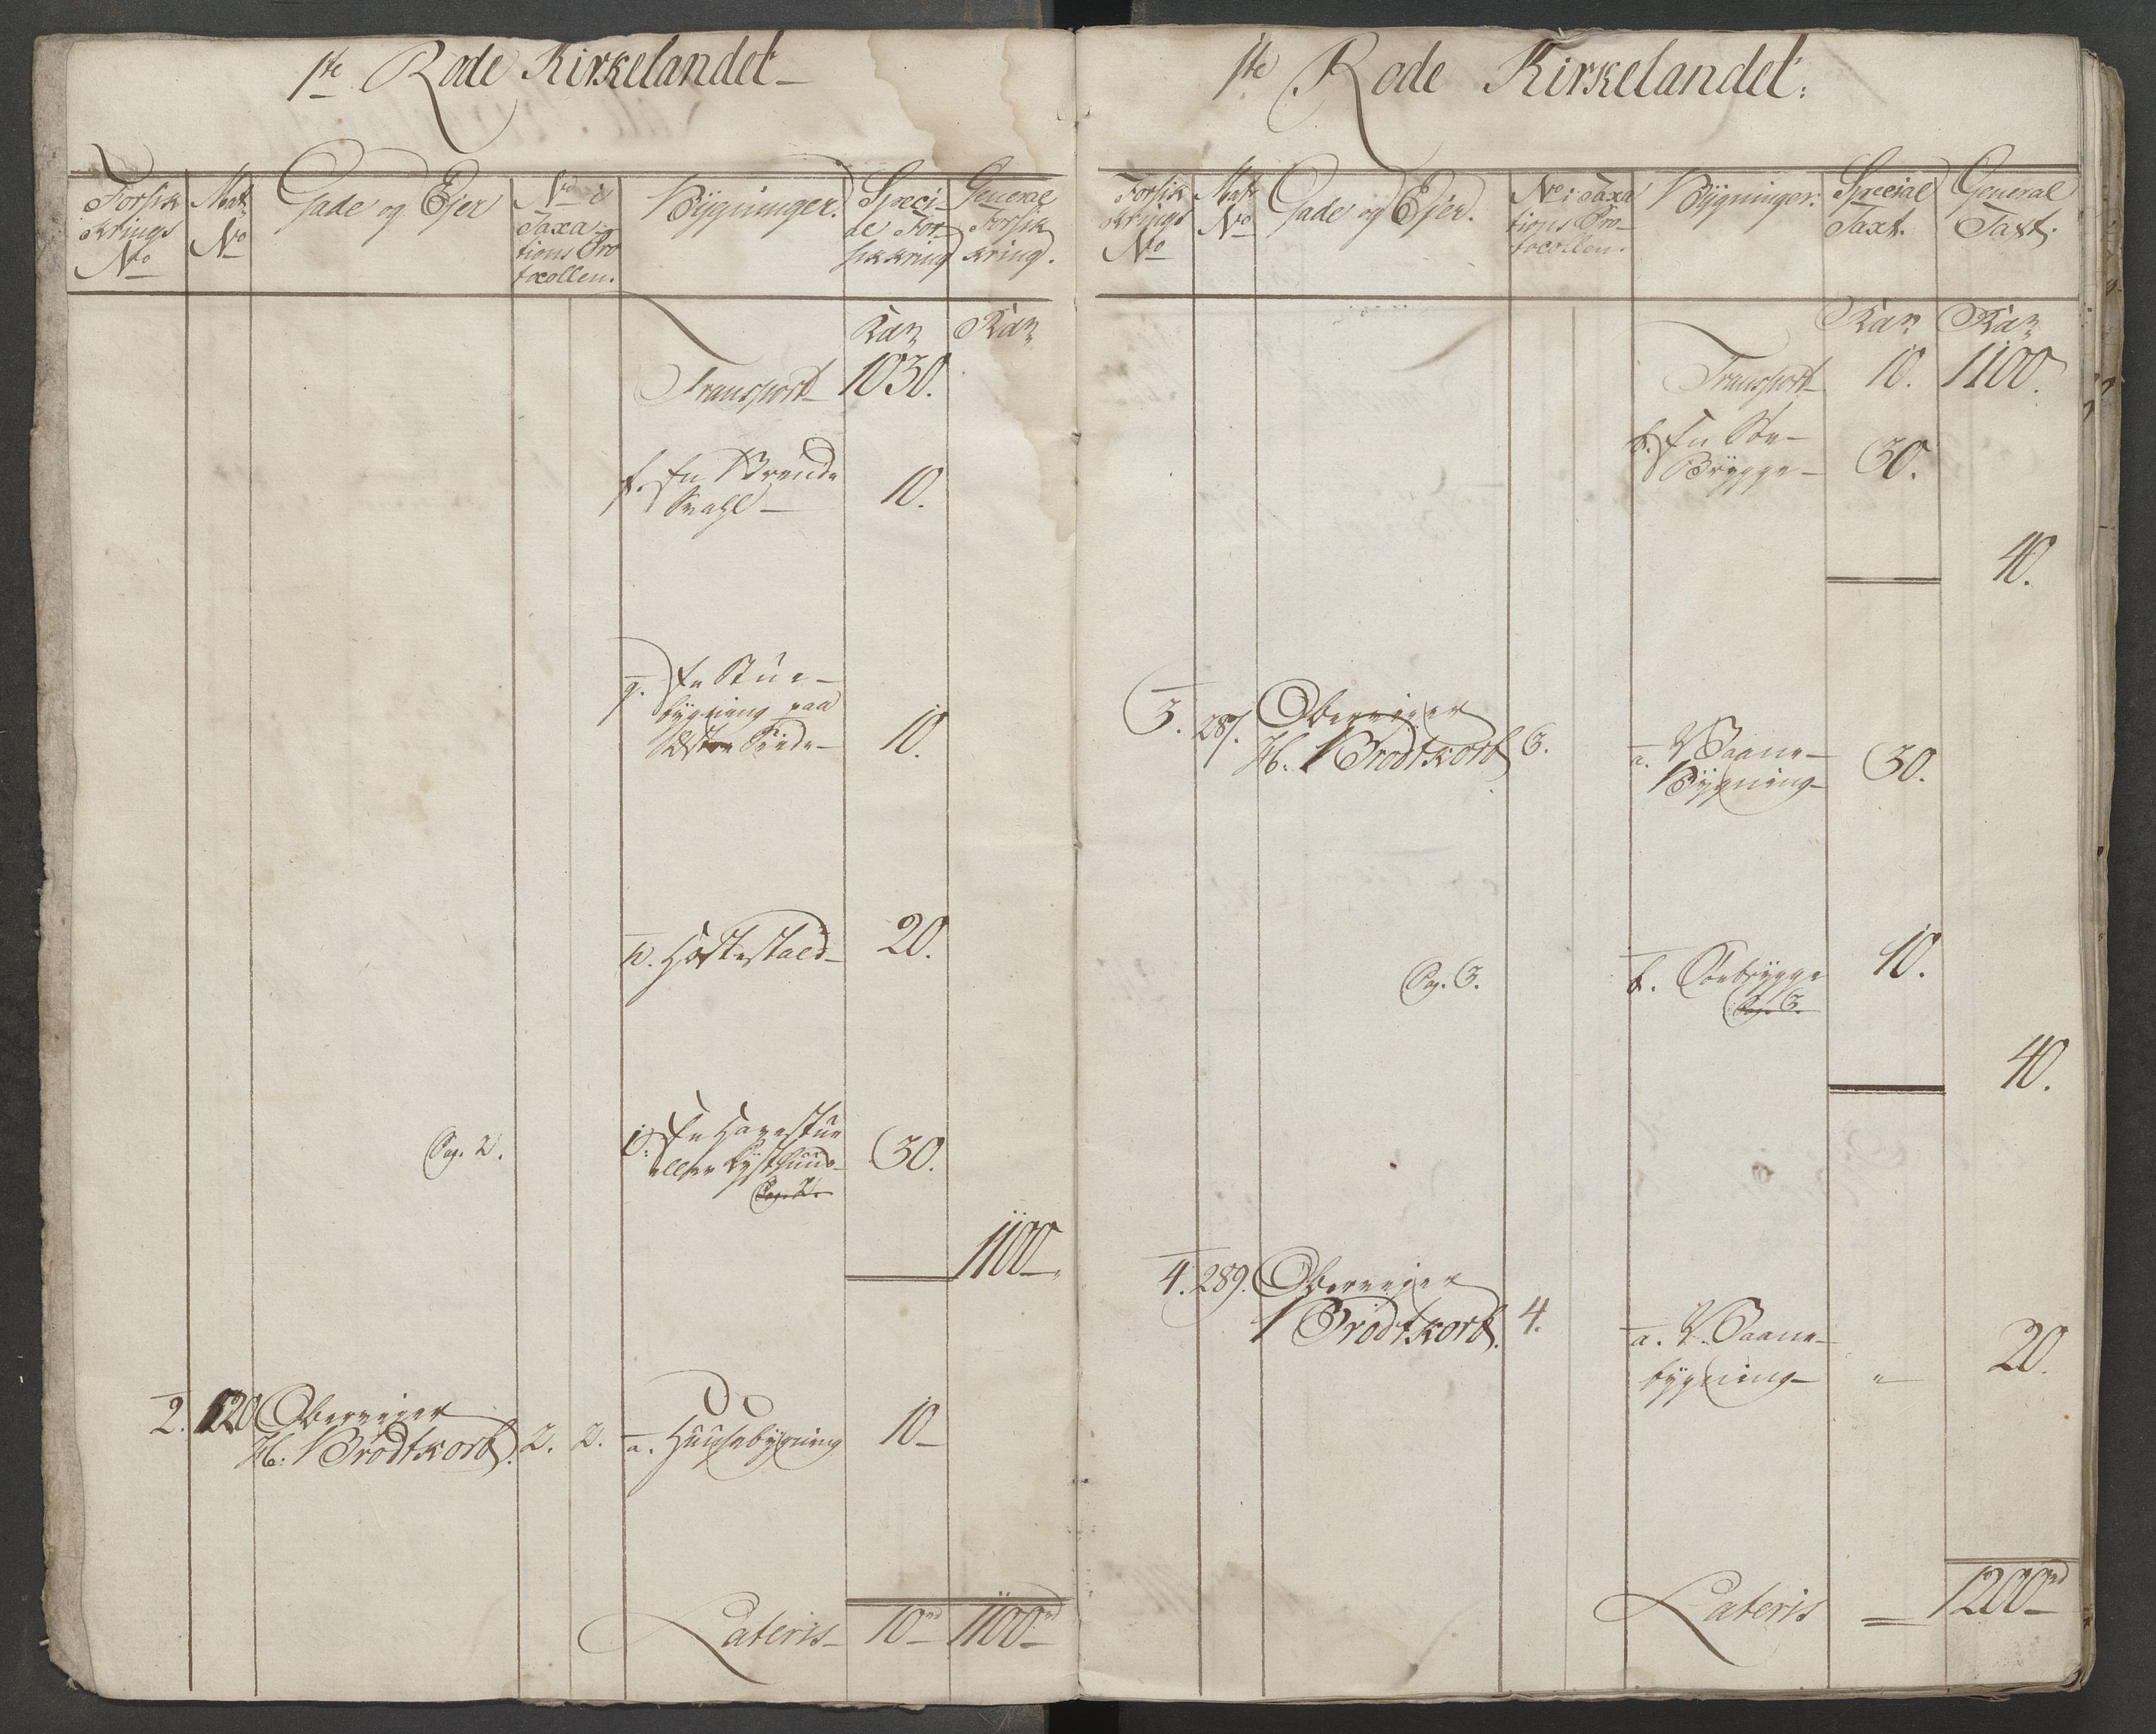 1ste Rode Kirkelandet
Forsik
krings
No
Matr
No
Gade og Ejer
No i
Taxa-
tions Pro
tocollen.
Bygninger.
Speci-
de For-
sikkring
General
Forsik
kring.
Rdr
Rdr
Transport 1030.
f. En Brende
Svahl 10.
g. En Stue-
bygning paa
Østre Side 10.
h. Hæstestald 20.
Pag. 2.
i. En Havestue
eller Lysthuus 30.
Pag. 2.
1100
2. 120 Oberveier
H: Brodtkorb. 2. 2. a. Huusebygning 10
Lateris 10rd 1100rd
1ste Rode Kirkelandet.
Forsik
krings
No
Matr
No
Gade og Ejer.
No i Taxa
tions Pro-
tocollen.
Bygninger.
Special
Taxt.
General
Taxt.
Rdr
Rdr
Transport 10. 1100.
b. En Søe-
Brygge 30.
40.
3. 287. Oberveier
H. Brodtkorb 3. a. Vaane-
Bygning 30.
Pag. 3.
b. Søebrygge 10.
Pag. 3.
40.
4. 289. Oberveier
Brodtkorb. 4. a. Vaane-
bygning " 20.
Lateris 1200rd